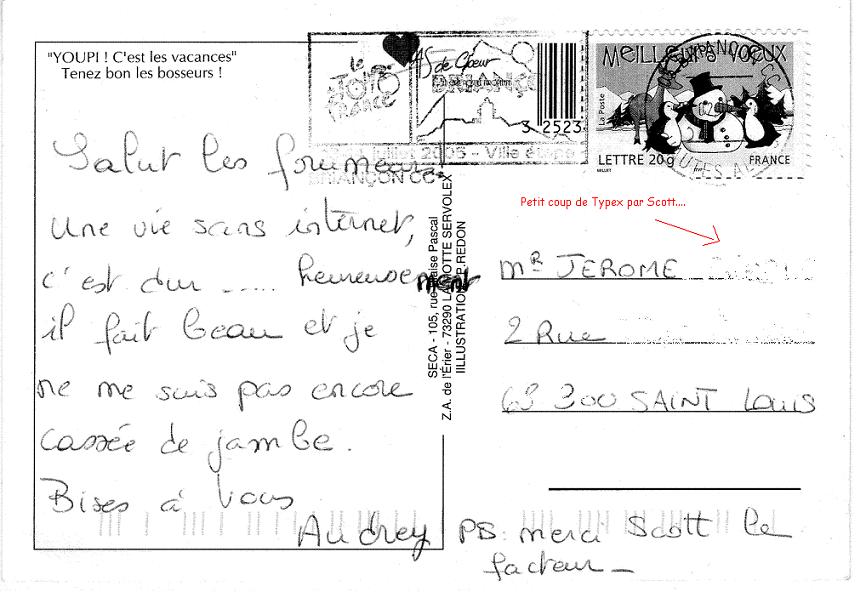 "YOUPI ! C'est les vacances"
Tenez bon les bosseurs !
Salut les foumeurs
Une vie sans internet,
c'est dur ..... heureusement
il fait beau et je
ne me suis pas encore
cassée de jambe.
Bises à vous
Audrey
PS: merci Scott le
facteur_
SECA - 105, rue Blaise Pascal
Z.A. de l'Érier - 73290 LA MOTTE SERVOLEX
IILLUSTRATION P.P.REDON
le TOUR de FRANCE
AS de Coeur
BRIANÇON
3 2523
juillet 2005 - Ville étape
BRIANÇON CC
MEILLEURS VOEUX
La Poste
LETTRE 20g
FRANCE
Petit coup de Typex par Scott....
MR JEROME
2 Rue
68 300 SAINT Louis